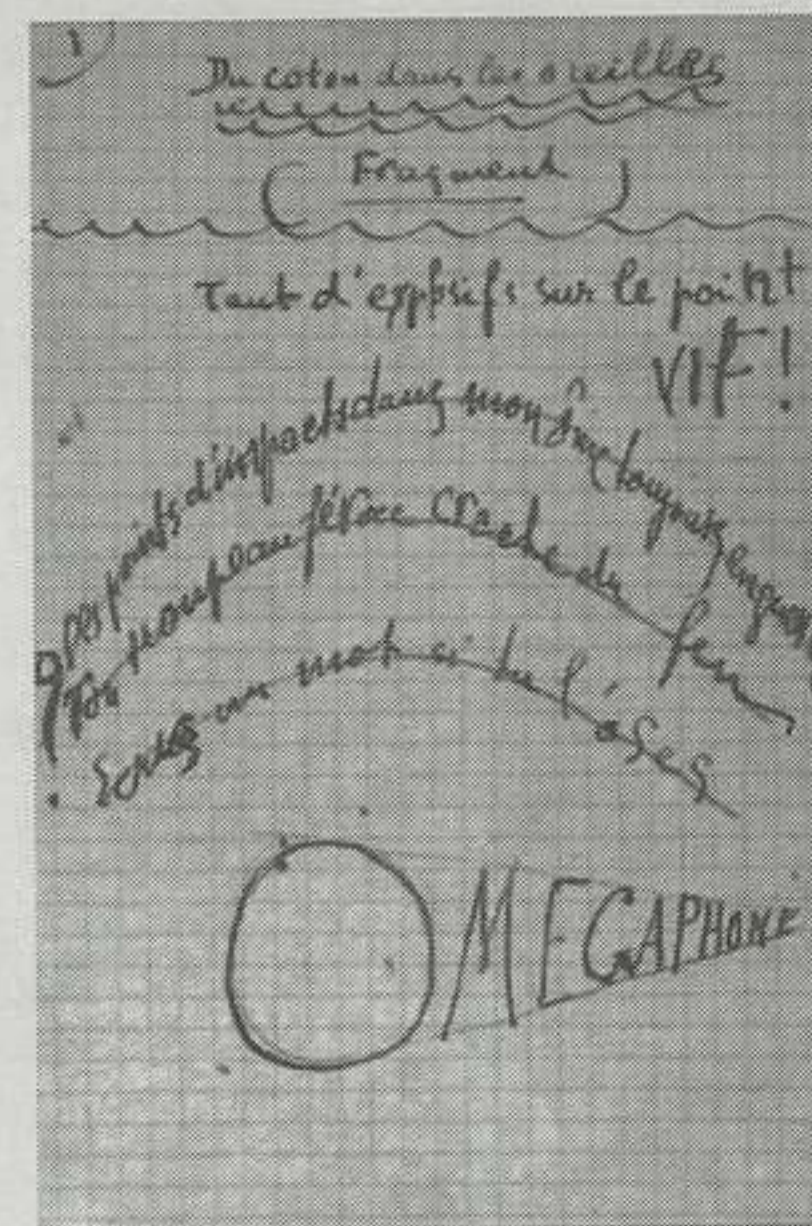 1
Du coton dans les oreilles
(Fragment)
Tant d'explosifs sur le point
VIF !
Les points d'impacts dans mon âme toujours en guer
Ton troupeau féroce crache du feu
Ecris un mot si tu l'oses
OMEGAPHONE